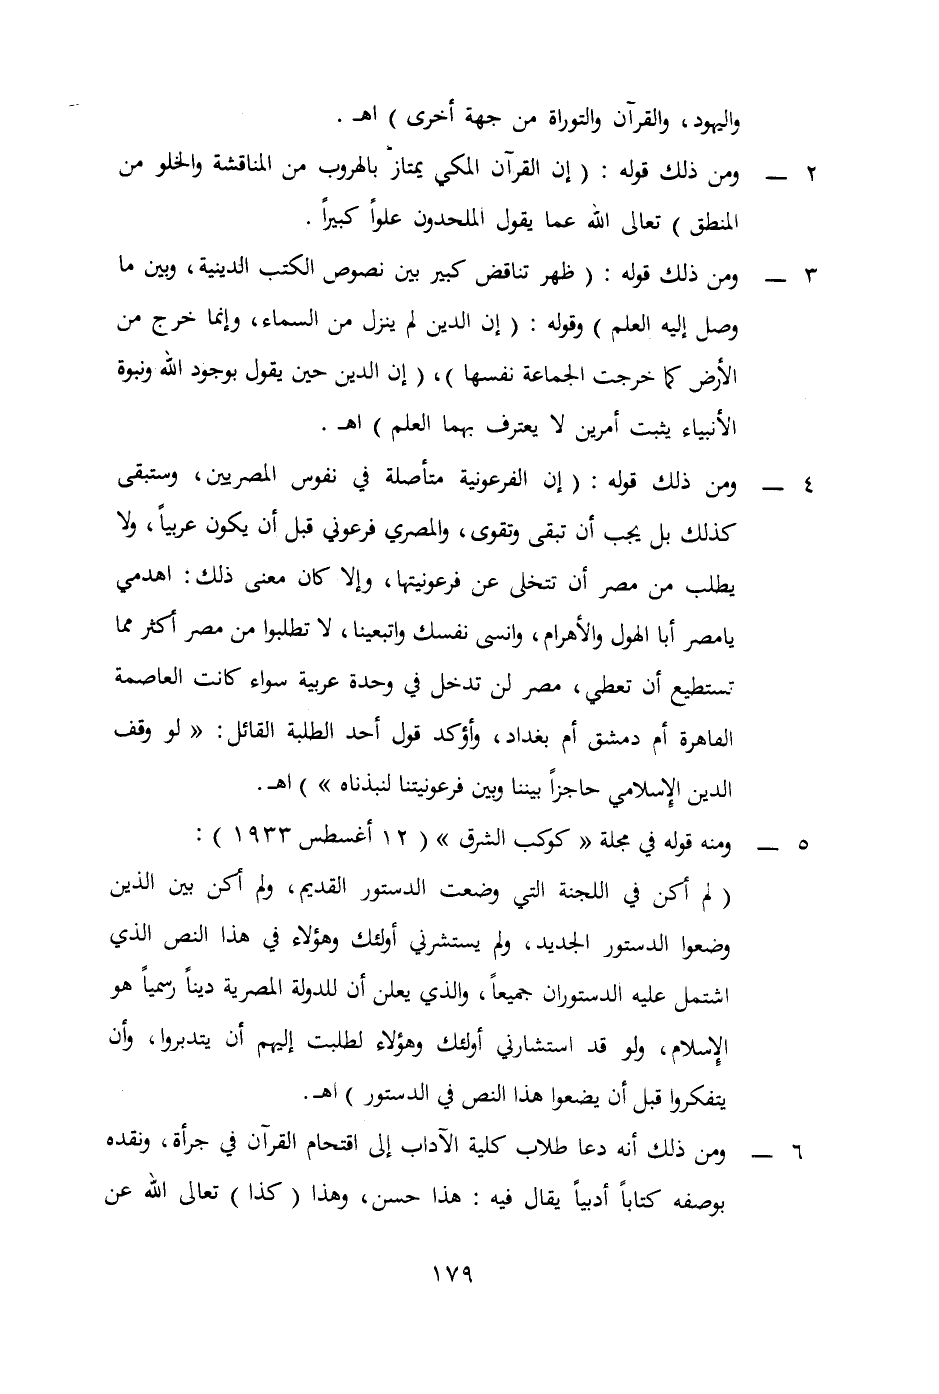 واليهود، والقرآن والتوراة من جهة أخرى ) اهـ .
٢ ــ ومن ذلك قوله : ( إن القرآن المكي يمتاز بالهروب من المناقشة والخلو من
المنطق ) تعالى الله عما يقول الملحدون علواً كبيراً .
٣ ــ ومن ذلك قوله : ( ظهر تناقض كبير بين نصوص الكتب الدينية، وبين ما
وصل إليه العلم ) وقوله : ( إن الدين لم ينزل من السماء، وإنما خرج من
الأرض كما خرجت الجماعة نفسها )، ( إن الدين حين يقول بوجود الله ونبوة
الأنبياء يثبت أمرين لا يعترف بهما العلم ) اهـ .
٤ ــ ومن ذلك قوله : ( إن الفرعونية متأصلة في نفوس المصريين، وستبقى
كذلك بل يجب أن تبقى وتقوى، والمصري فرعوني قبل أن يكون عربياً، ولا
يطلب من مصر أن تتخلى عن فرعونيتها، وإلا كان معنى ذلك: اهدمي
يامصر أبا الهول والأهرام، وانسى نفسك واتبعينا، لا تطلبوا من مصر أكثر مما
تستطيع أن تعطي، مصر لن تدخل في وحدة عربية سواء كانت العاصمة
القاهرة أم دمشق أم بغداد، وأؤكد قول أحد الطلبة القائل: « لو وقف
الدين الإسلامي حاجزاً بيننا وبين فرعونيتنا لنبذناه » ) اهـ.
٥ ــ ومنه قوله في مجلة « كوكب الشرق » ( ١٢ أغسطس ١٩٣٣ ) :
( لم أكن في اللجنة التي وضعت الدستور القديم، ولم أكن بين الذين
وضعوا الدستور الجديد، ولم يستشرني أولئك وهؤلاء في هذا النص الذي
اشتمل عليه الدستوران جميعاً، والذي يعلن أن للدولة المصرية ديناً رسمياً هو
الإسلام، ولو قد استشارني أولئك وهؤلاء لطلبت إليهم أن يتدبروا، وأن
يتفكروا قبل أن يضعوا هذا النص في الدستور ) اهـ.
٦ ــ ومن ذلك أنه دعا طلاب كلية الآداب إلى اقتحام القرآن في جرأة، ونقده
بوصفه كتاباً أدبياً يقال فيه : هذا حسن، وهذا ( كذا ) تعالى الله عن
١٧٩